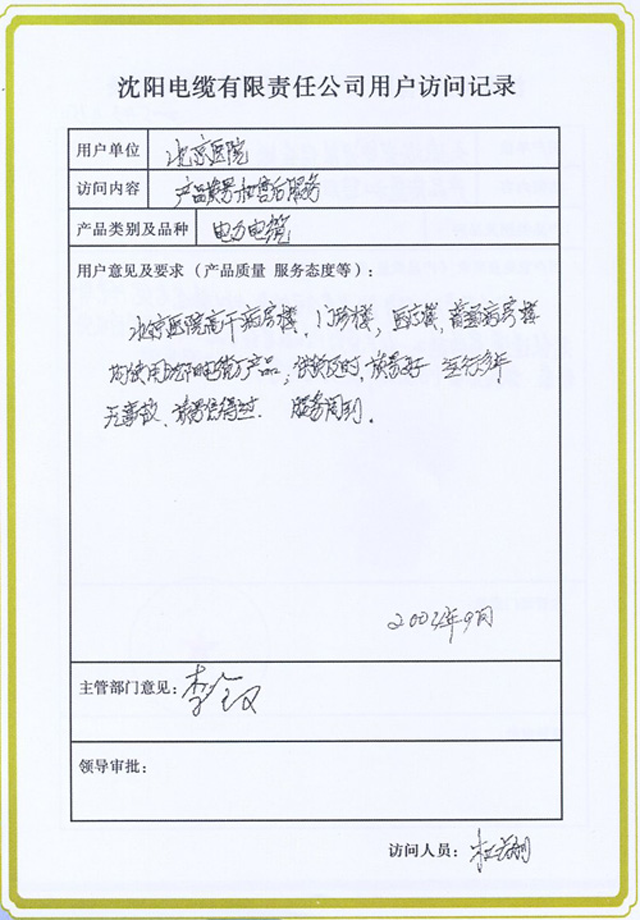 沈阳电缆有限责任公司用户访问记录
用户单位 北京医院
访问内容 产品质量和售后服务
产品类别及品种 电力电缆
用户意见及要求（产品质量 服务态度等）：
北京医院高干病房楼、门诊楼，医疗楼，普通病房楼
均使用沈阳电缆厂产品，供货及时，质量好 运行多年
无事故、质量信得过. 服务周到.
年9月
主管部门意见：李
领导审批：
访问人员：